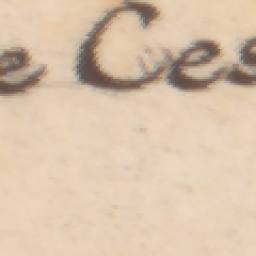 e Ces